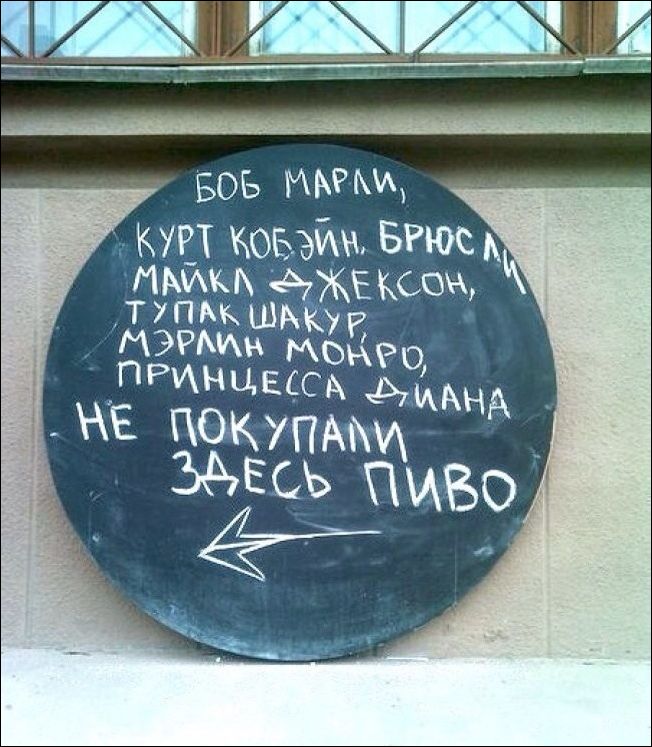 БОБ МАРЛИ,
КУРТ КОБЭЙН, БРЮС ЛИ
МАЙКЛ ДЖЕКСОН,
ТУПАК ШАКУР,
МЭРЛИН МОНРО,
ПРИНЦЕССА ДИАНА
НЕ ПОКУПАЛИ
ЗДЕСЬ ПИВО